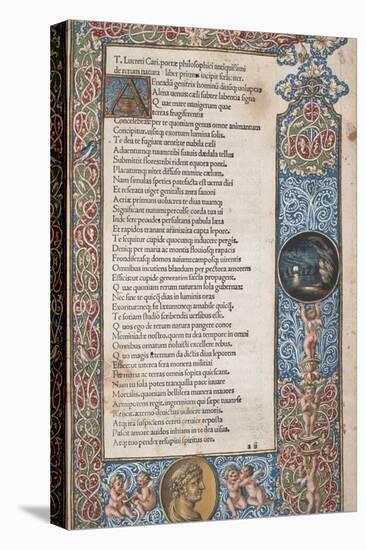 T. Lucreti Cari. poetæ philosophici antiquissimi
de rerum natura liber primus incipit fœliciter.
Aeneadū genitrix hominū diuūq; uoluptas
Alma uenus: cæli subter labentia signa
Quae mare nauigerum quae
terras frugiferentis
Concelebras: per te quoniam genus omne animantum
Concipitur. uisitq; exortum lumina solis.
Te dea te fugiunt uenti: te nubila cæli
Aduentumq; tuum: tibi suauis dædala tellus
Submittit flores: tibi rident equora ponti.
Placatumq; nitet diffuso numine cælum.
Nam simul ac species patefacta est uerna diei
Et reserata uiget genitalis aura fauoni
Aeriæ primum uolucres te diua tuumq;
Significant nutum: perculse corda tua ui
Inde fere pecudes persultans pabula læta
Et rapidos tranant amnis: ita capta lepore.
Te sequitur cupide quocunq; inducere pergis.
Deniq; per maria ac montis fluuiosq; rapacis
Frondiferasq; domos auium: camposq; uirentis
Omnibus incutiens blandum per pectora amorem
Efficis: ut cupide generatim sæcla propagent.
Quae quoniam rerum naturam sola gubernas:
Nec sine te quicq̄ dias in luminis oras
Exoritur: neq; fit lætum: neq; amabile quicq̄.
Te sotiam studio scribendis uersibus esse.
Quos ego de rerum natura pangere conor
Memmiadæ nostro. quem tu dea tempore in omni
Omnibus ornatum uoluisti excellere rebus.
Quo magis æternum da dictis diua leporem
Effice: ut interea fera moenera militiai
Per maria ac terras omnis sopita quiescant.
Nam tu sola potes tranquilla pace iuuare
Mortalis. quoniam belli fera munera mauors
Armipotens regit. in gremium qui sæpe tuum se
Reiicit. æterno deuictus uulnere amoris.
Atq; ita suspiciens cereti ceruice reposta
Pascit amore auidos inhians in te dea uisus.
Atq; tuo pendet resupini spiritus ore.
a ii